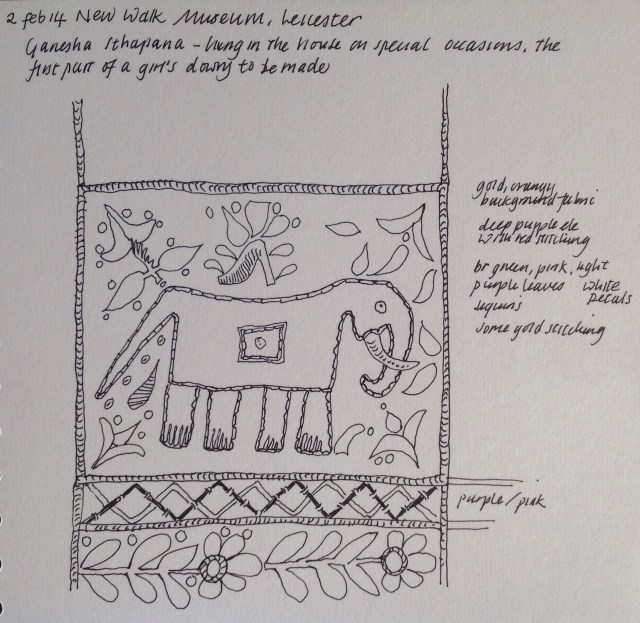 2 feb 14 New Walk Museum, Leicester
Ganesha Sthapana - hung in the house on special occasions. The
first part of a girl's dowry to be made
gold, orangy
background fabric
deep purple ele
with red stitching
br green, pink, light
purple leaves white
petals
sequins
some gold stitching
purple/pink